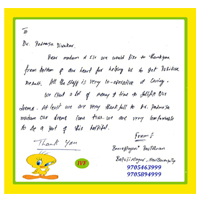 To
Dr. Padmaja Divakar,
Dear madam & sir we would like to thankyou
from bottom of our heart for helping us to get Positive
Result. All the staff is very co-operative & caring.
We spent a lot of money & time to fulfill our
dreams. At last we are very thankfull to Dr. Padmaja
madam our dream came true. we are very comfortable
to be a part of this hospital.
Thank You
From:
Nagar,
9705463999
9705894999